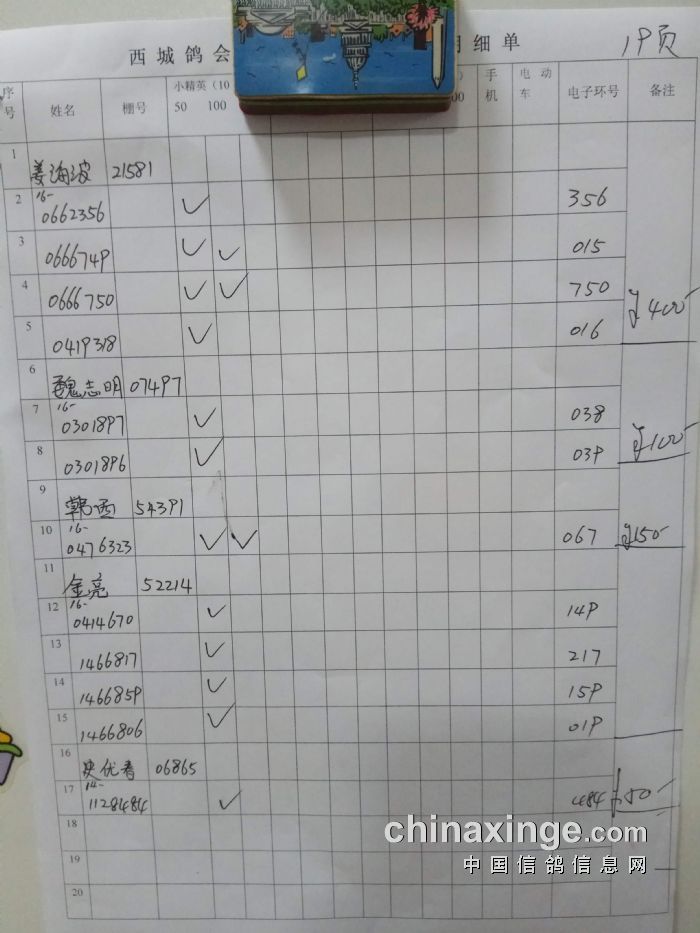 西城鸽会 明细单 19页
序号 姓名 棚号 小精英(10 手机 电动车 电子环号 备注
50 100 00
1 姜海波 21581
2 16- 0662356 ✓ 356
3 0666749 ✓ ✓ 015
4 0666750 ✓ ✓ 750
5 0419318 ✓ 016 ¥400-
6 魏志明 07497
7 16- 0301897 ✓ 038
8 0301896 ✓ 039 ¥100-
9 韩 54391
10 16- 0476323 ✓ ✓ 067 ¥150-
11 金亮 52214
12 16- 0414670 ✓ 149
13 1466817 ✓ 217
14 1466859 ✓ 159
15 1466806 ✓ 019
16 史优春 06865
17 14- 11281484 ✓ 484 ¥50-
18
19
20
chinaxinge.com
中国信鸽信息网